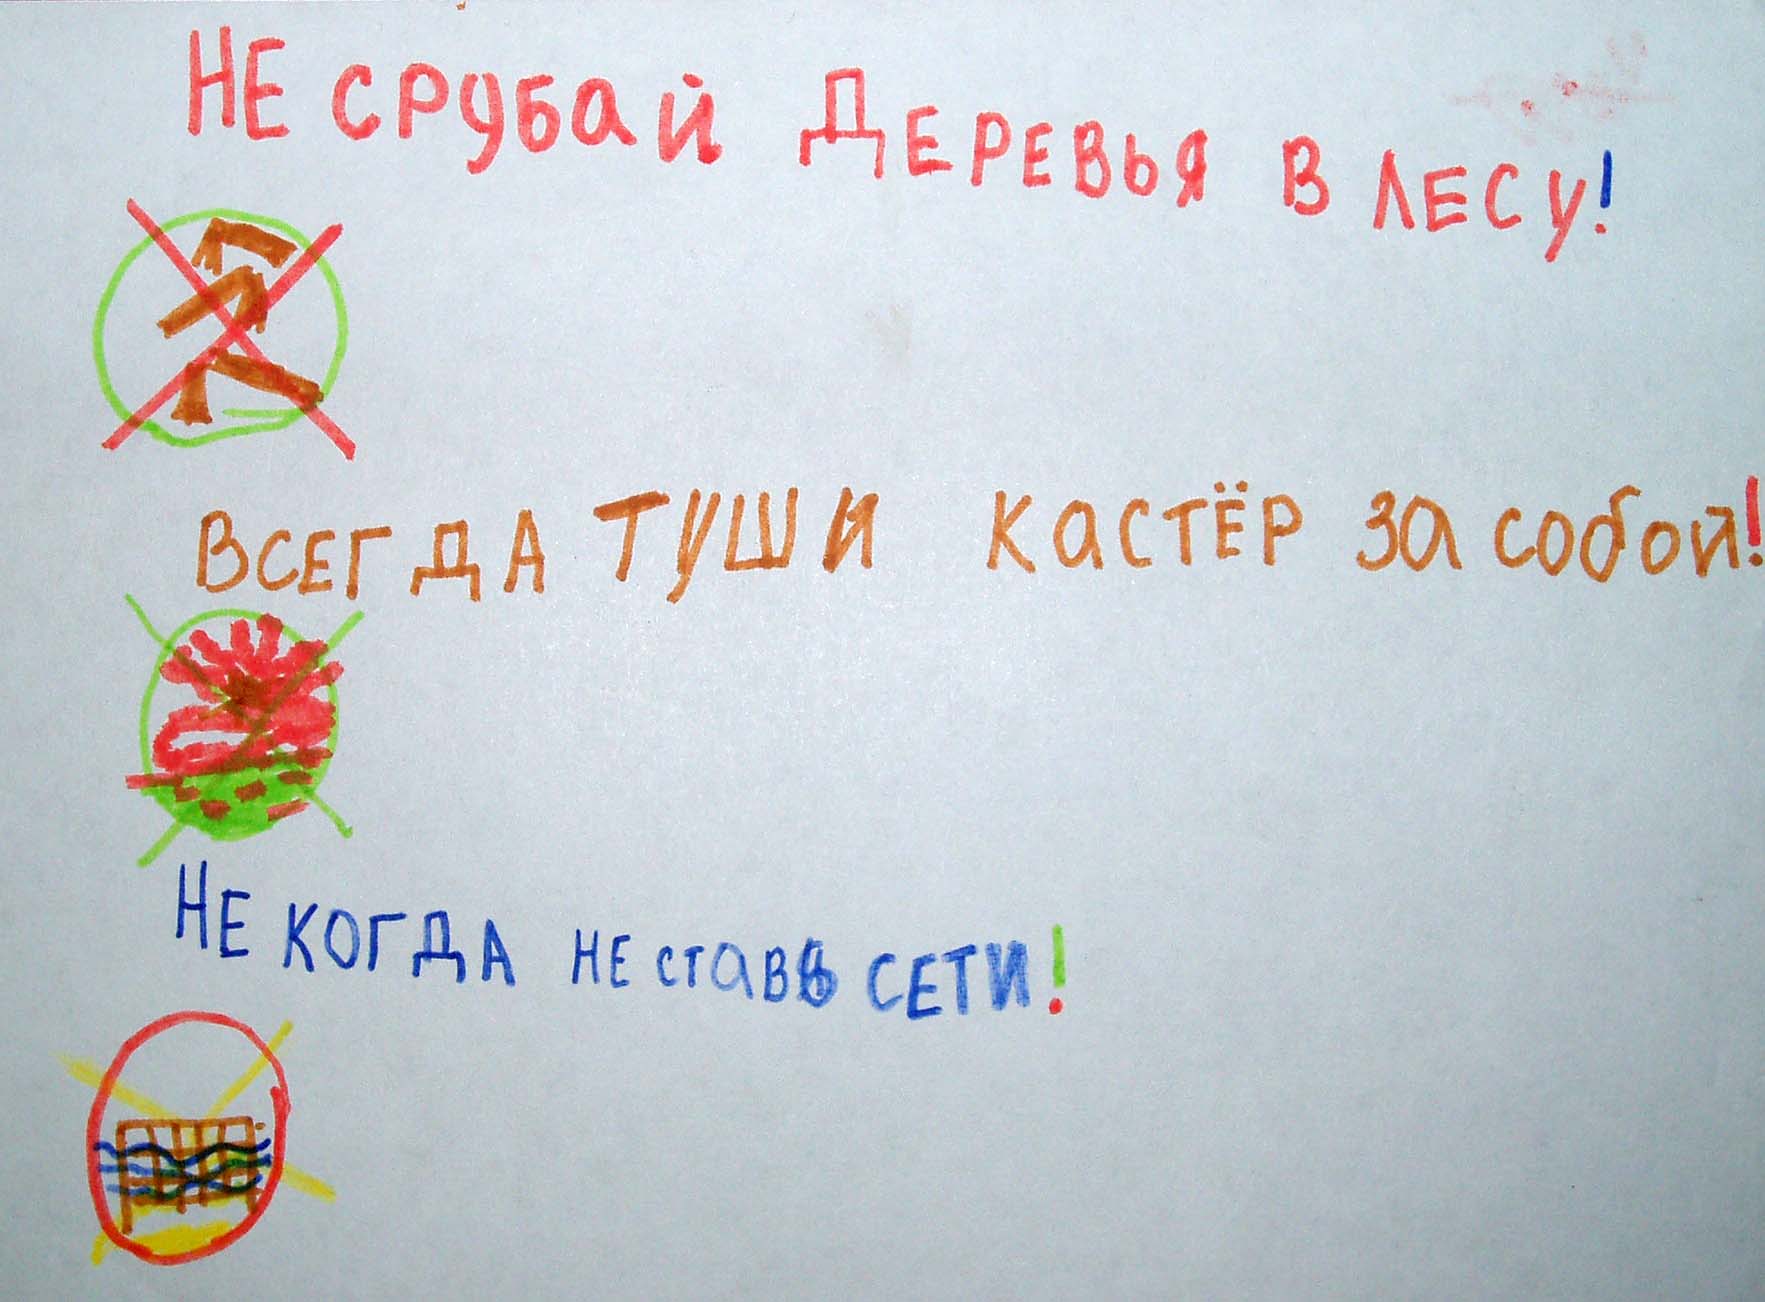 НЕ срубай Деревья в лесу!
Всегда туши кастёр за собой!
Не когда не ставь сети!